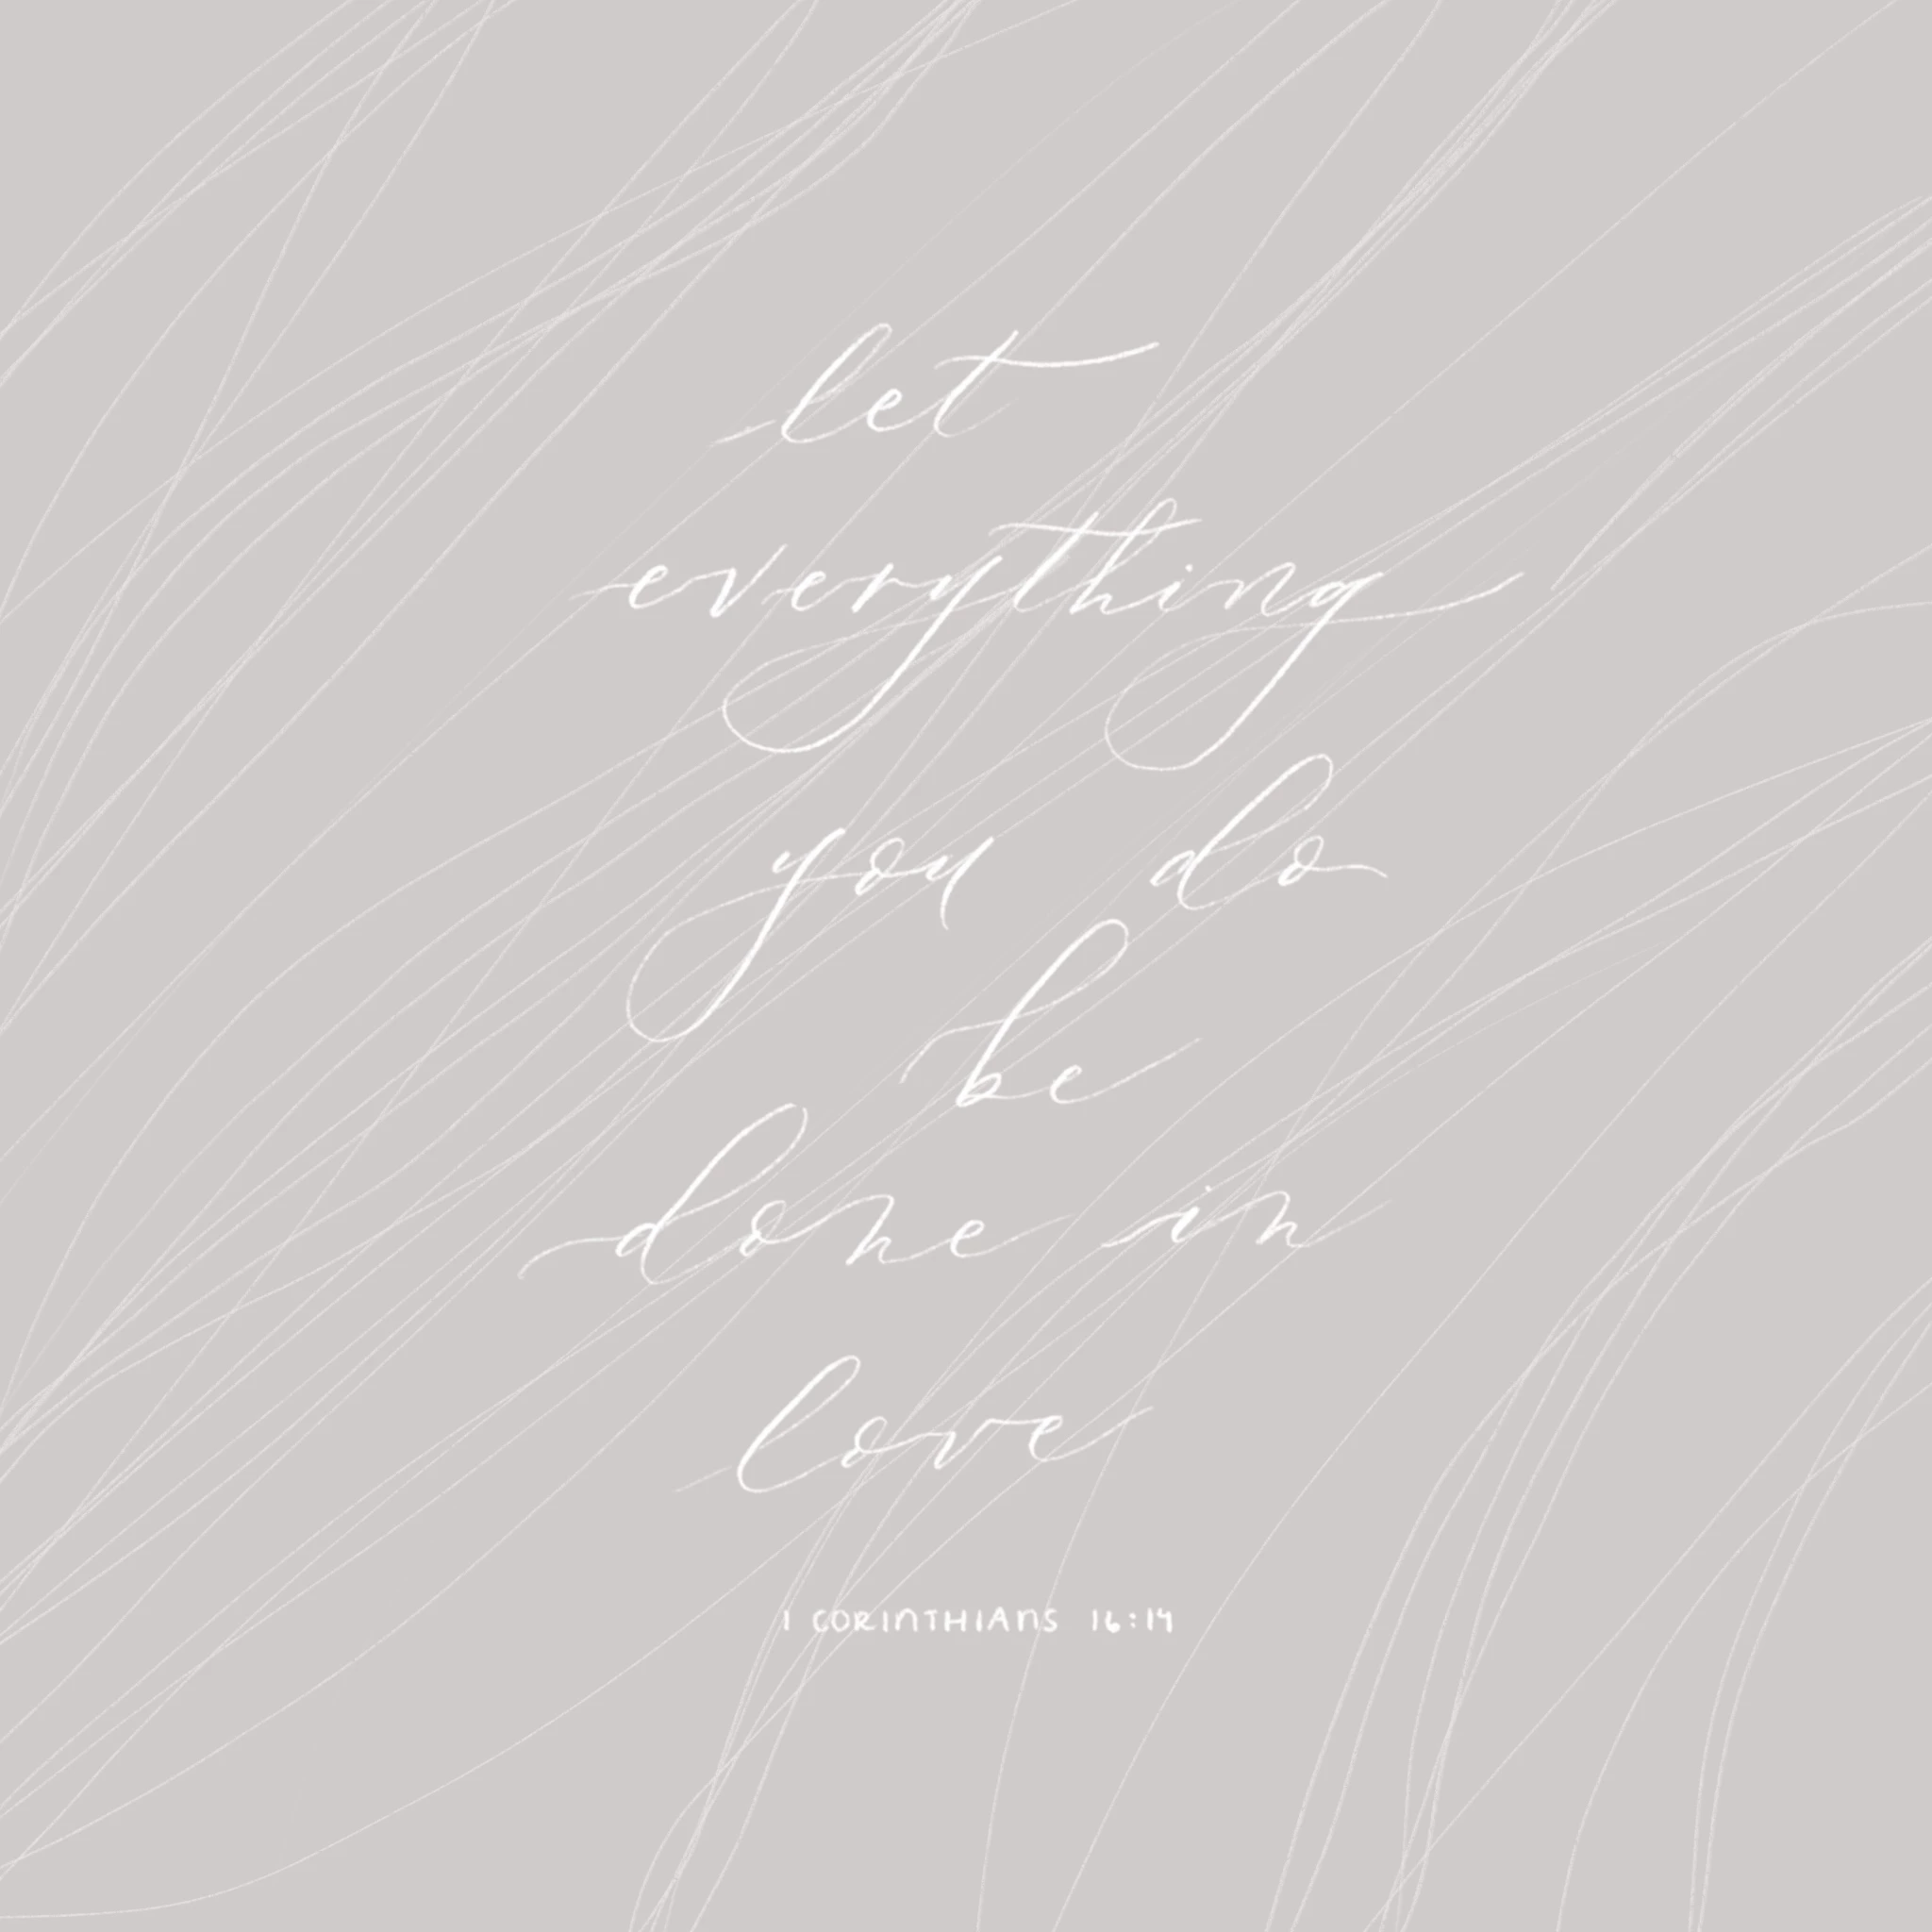 let
everything
you do
be
done in
love
1 CORINTHIANS 16:14